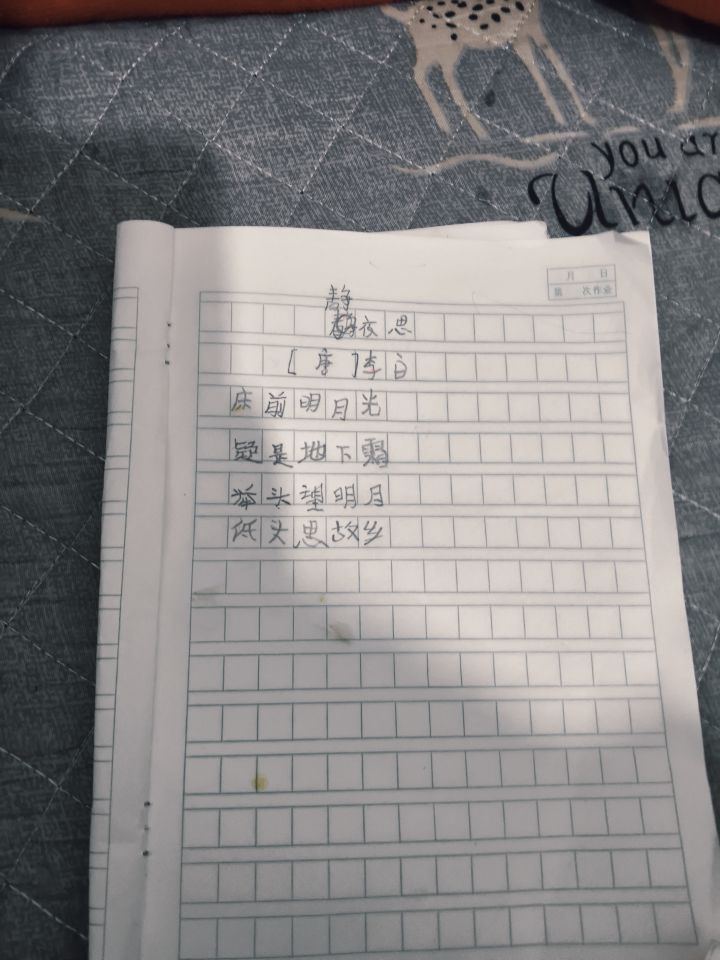 you ar
Unic
月 日
第 次作业
静夜思
[唐]李白
床前明月光
疑是地下霜
举头望明月
低头思故乡